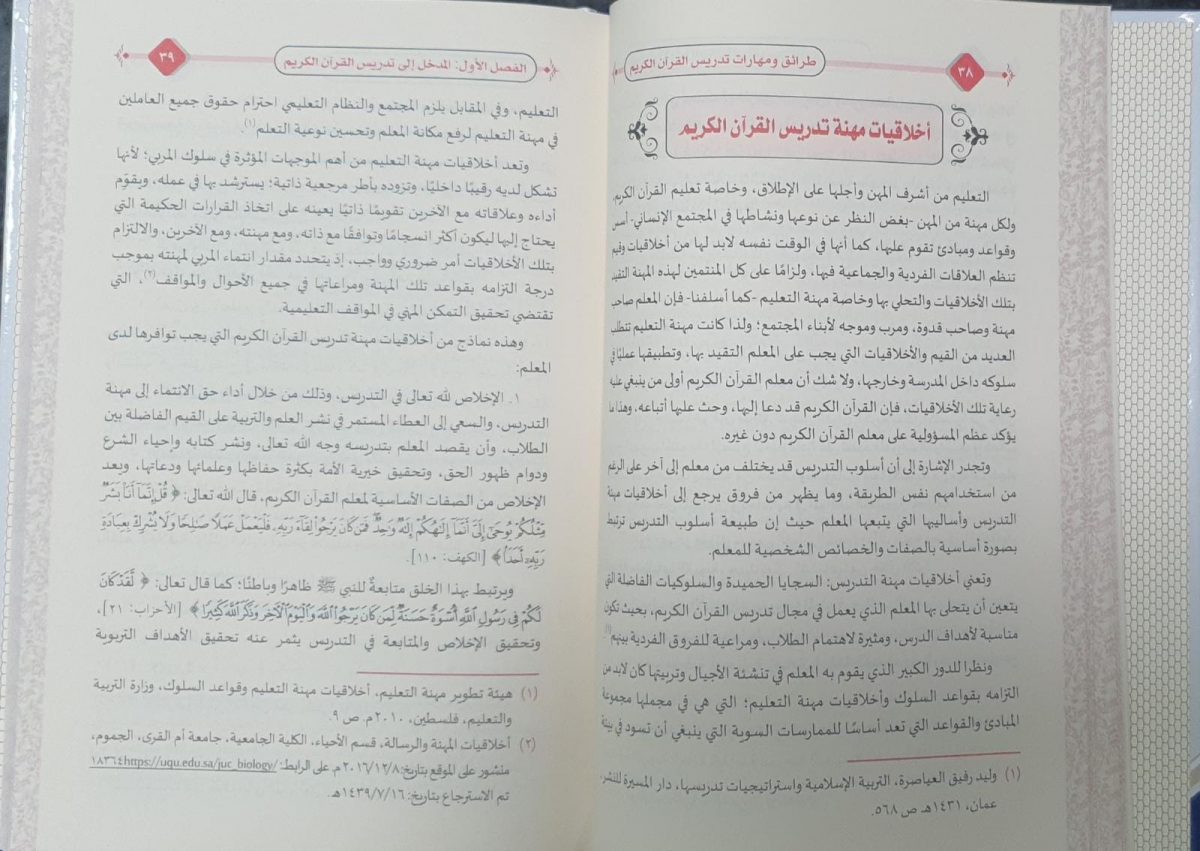 طرائق ومهارات تدريس القرآن الكريم
٣٨
أخلاقيات مهنة تدريس القرآن الكريم
التعليم من أشرف المهن وأجلها على الإطلاق، وخاصة تعليم القرآن الكريم.
ولكل مهنة من المهن -بغض النظر عن نوعها ونشاطها في المجتمع الإنساني- أسس
وقواعد ومبادئ تقوم عليها، كما أنها في الوقت نفسه لابد لها من أخلاقيات وقيم
تنظم العلاقات الفردية والجماعية فيها، ولزامًا على كل المنتمين لهذه المهنة التقيد
بتلك الأخلاقيات والتحلي بها وخاصة مهنة التعليم -كما أسلفنا- فإن المعلم صاحب
مهنة وصاحب قدوة، ومرب وموجه لأبناء المجتمع؛ ولذا كانت مهنة التعليم تتطلب
العديد من القيم والأخلاقيات التي يجب على المعلم التقيد بها، وتطبيقها عمليًا في
سلوكه داخل المدرسة وخارجها، ولا شك أن معلم القرآن الكريم أولى من ينبغي عليه
رعاية تلك الأخلاقيات، فإن القرآن الكريم قد دعا إليها، وحث عليها أتباعه، وهذا ما
يؤكد عظم المسؤولية على معلم القرآن الكريم دون غيره.
وتجدر الإشارة إلى أن أسلوب التدريس قد يختلف من معلم إلى آخر على الرغم
من استخدامهم نفس الطريقة، وما يظهر من فروق يرجع إلى أخلاقيات مهنة
التدريس وأساليبها التي يتبعها المعلم حيث إن طبيعة أسلوب التدريس ترتبط
بصورة أساسية بالصفات والخصائص الشخصية للمعلم.
وتعني أخلاقيات مهنة التدريس: السجايا الحميدة والسلوكيات الفاضلة التي
يتعين أن يتحلى بها المعلم الذي يعمل في مجال تدريس القرآن الكريم، بحيث تكون
مناسبة لأهداف الدرس، ومثيرة لاهتمام الطلاب، ومراعية للفروق الفردية بينهم(١).
ونظرا للدور الكبير الذي يقوم به المعلم في تنشئة الأجيال وتربيتها كان لابد من
التزامه بقواعد السلوك وأخلاقيات مهنة التعليم؛ التي هي في مجملها مجموعة
المبادئ والقواعد التي تعد أساسًا للممارسات السوية التي ينبغي أن تسود في بيئة
(١) وليد رفيق العياصرة، التربية الإسلامية واستراتيجيات تدريسها، دار المسيرة للنشر،
عمان، ١٤٣١هـ ص ٥٦٨.
الفصل الأول: المدخل إلى تدريس القرآن الكريم
٣٩
التعليم، وفي المقابل يلزم المجتمع والنظام التعليمي احترام حقوق جميع العاملين
في مهنة التعليم لرفع مكانة المعلم وتحسين نوعية التعلم(١).
وتعد أخلاقيات مهنة التعليم من أهم الموجهات المؤثرة في سلوك المربي؛ لأنها
تشكل لديه رقيبًا داخليًا، وتزوده بأطر مرجعية ذاتية؛ يسترشد بها في عمله، ويقوّم
أداءه وعلاقاته مع الآخرين تقويمًا ذاتيًا يعينه على اتخاذ القرارات الحكيمة التي
يحتاج إليها ليكون أكثر انسجامًا وتوافقًا مع ذاته، ومع مهنته، ومع الآخرين، والالتزام
بتلك الأخلاقيات أمر ضروري وواجب، إذ يتحدد مقدار انتماء المربي لمهنته بموجب
درجة التزامه بقواعد تلك المهنة ومراعاتها في جميع الأحوال والمواقف(٢)، التي
تقتضي تحقيق التمكن المهني في المواقف التعليمية.
وهذه نماذج من أخلاقيات مهنة تدريس القرآن الكريم التي يجب توافرها لدى
المعلم:
١. الإخلاص لله تعالى في التدريس، وذلك من خلال أداء حق الانتماء إلى مهنة
التدريس، والسعي إلى العطاء المستمر في نشر العلم والتربية على القيم الفاضلة بين
الطلاب، وأن يقصد المعلم بتدريسه وجه الله تعالى، ونشر كتابه وإحياء الشرع
ودوام ظهور الحق، وتحقيق خيرية الأمة بكثرة حفاظها وعلمائها ودعاتها، ويعد
الإخلاص من الصفات الأساسية لمعلم القرآن الكريم، قال الله تعالى: ﴿ قُلْ إِنَّمَا أَنَا۠ بَشَرٌ
مِّثْلُكُمْ يُوحَىٰ إِلَيَّ أَنَّمَا إِلَٰهُكُمْ إِلَٰهٌ وَٰحِدٌ فَمَن كَانَ يَرْجُوا۟ لِقَآءَ رَبِّهِۦ فَلْيَعْمَلْ عَمَلًا صَٰلِحًا وَلَا يُشْرِكْ بِعِبَادَةِ
رَبِّهِۦٓ أَحَدًۢا ﴾ [الكهف: ١١٠].
ويرتبط بهذا الخلق متابعةٌ للنبي ﷺ ظاهرًا وباطنًا؛ كما قال تعالى: ﴿ لَّقَدْ كَانَ
لَكُمْ فِى رَسُولِ ٱللَّهِ أُسْوَةٌ حَسَنَةٌ لِّمَن كَانَ يَرْجُوا۟ ٱللَّهَ وَٱلْيَوْمَ ٱلْءَاخِرَ وَذَكَرَ ٱللَّهَ كَثِيرًا ﴾ [الأحزاب: ٢١]،
وتحقيق الإخلاص والمتابعة في التدريس يثمر عنه تحقيق الأهداف التربوية
(١) هيئة تطوير مهنة التعليم، أخلاقيات مهنة التعليم وقواعد السلوك، وزارة التربية
والتعليم، فلسطين، ٢٠١٠م. ص ٩.
(٢) أخلاقيات المهنة والرسالة، قسم الأحياء، الكلية الجامعية، جامعة أم القرى، الجموم،
منشور على الموقع بتاريخ: ٢٠١٦/١٢/٨م على الرابط: https://uqu.edu.sa/juc_biology/١٨٣٦٤
تم الاسترجاع بتاريخ: ١٤٣٩/٧/١٦هـ.